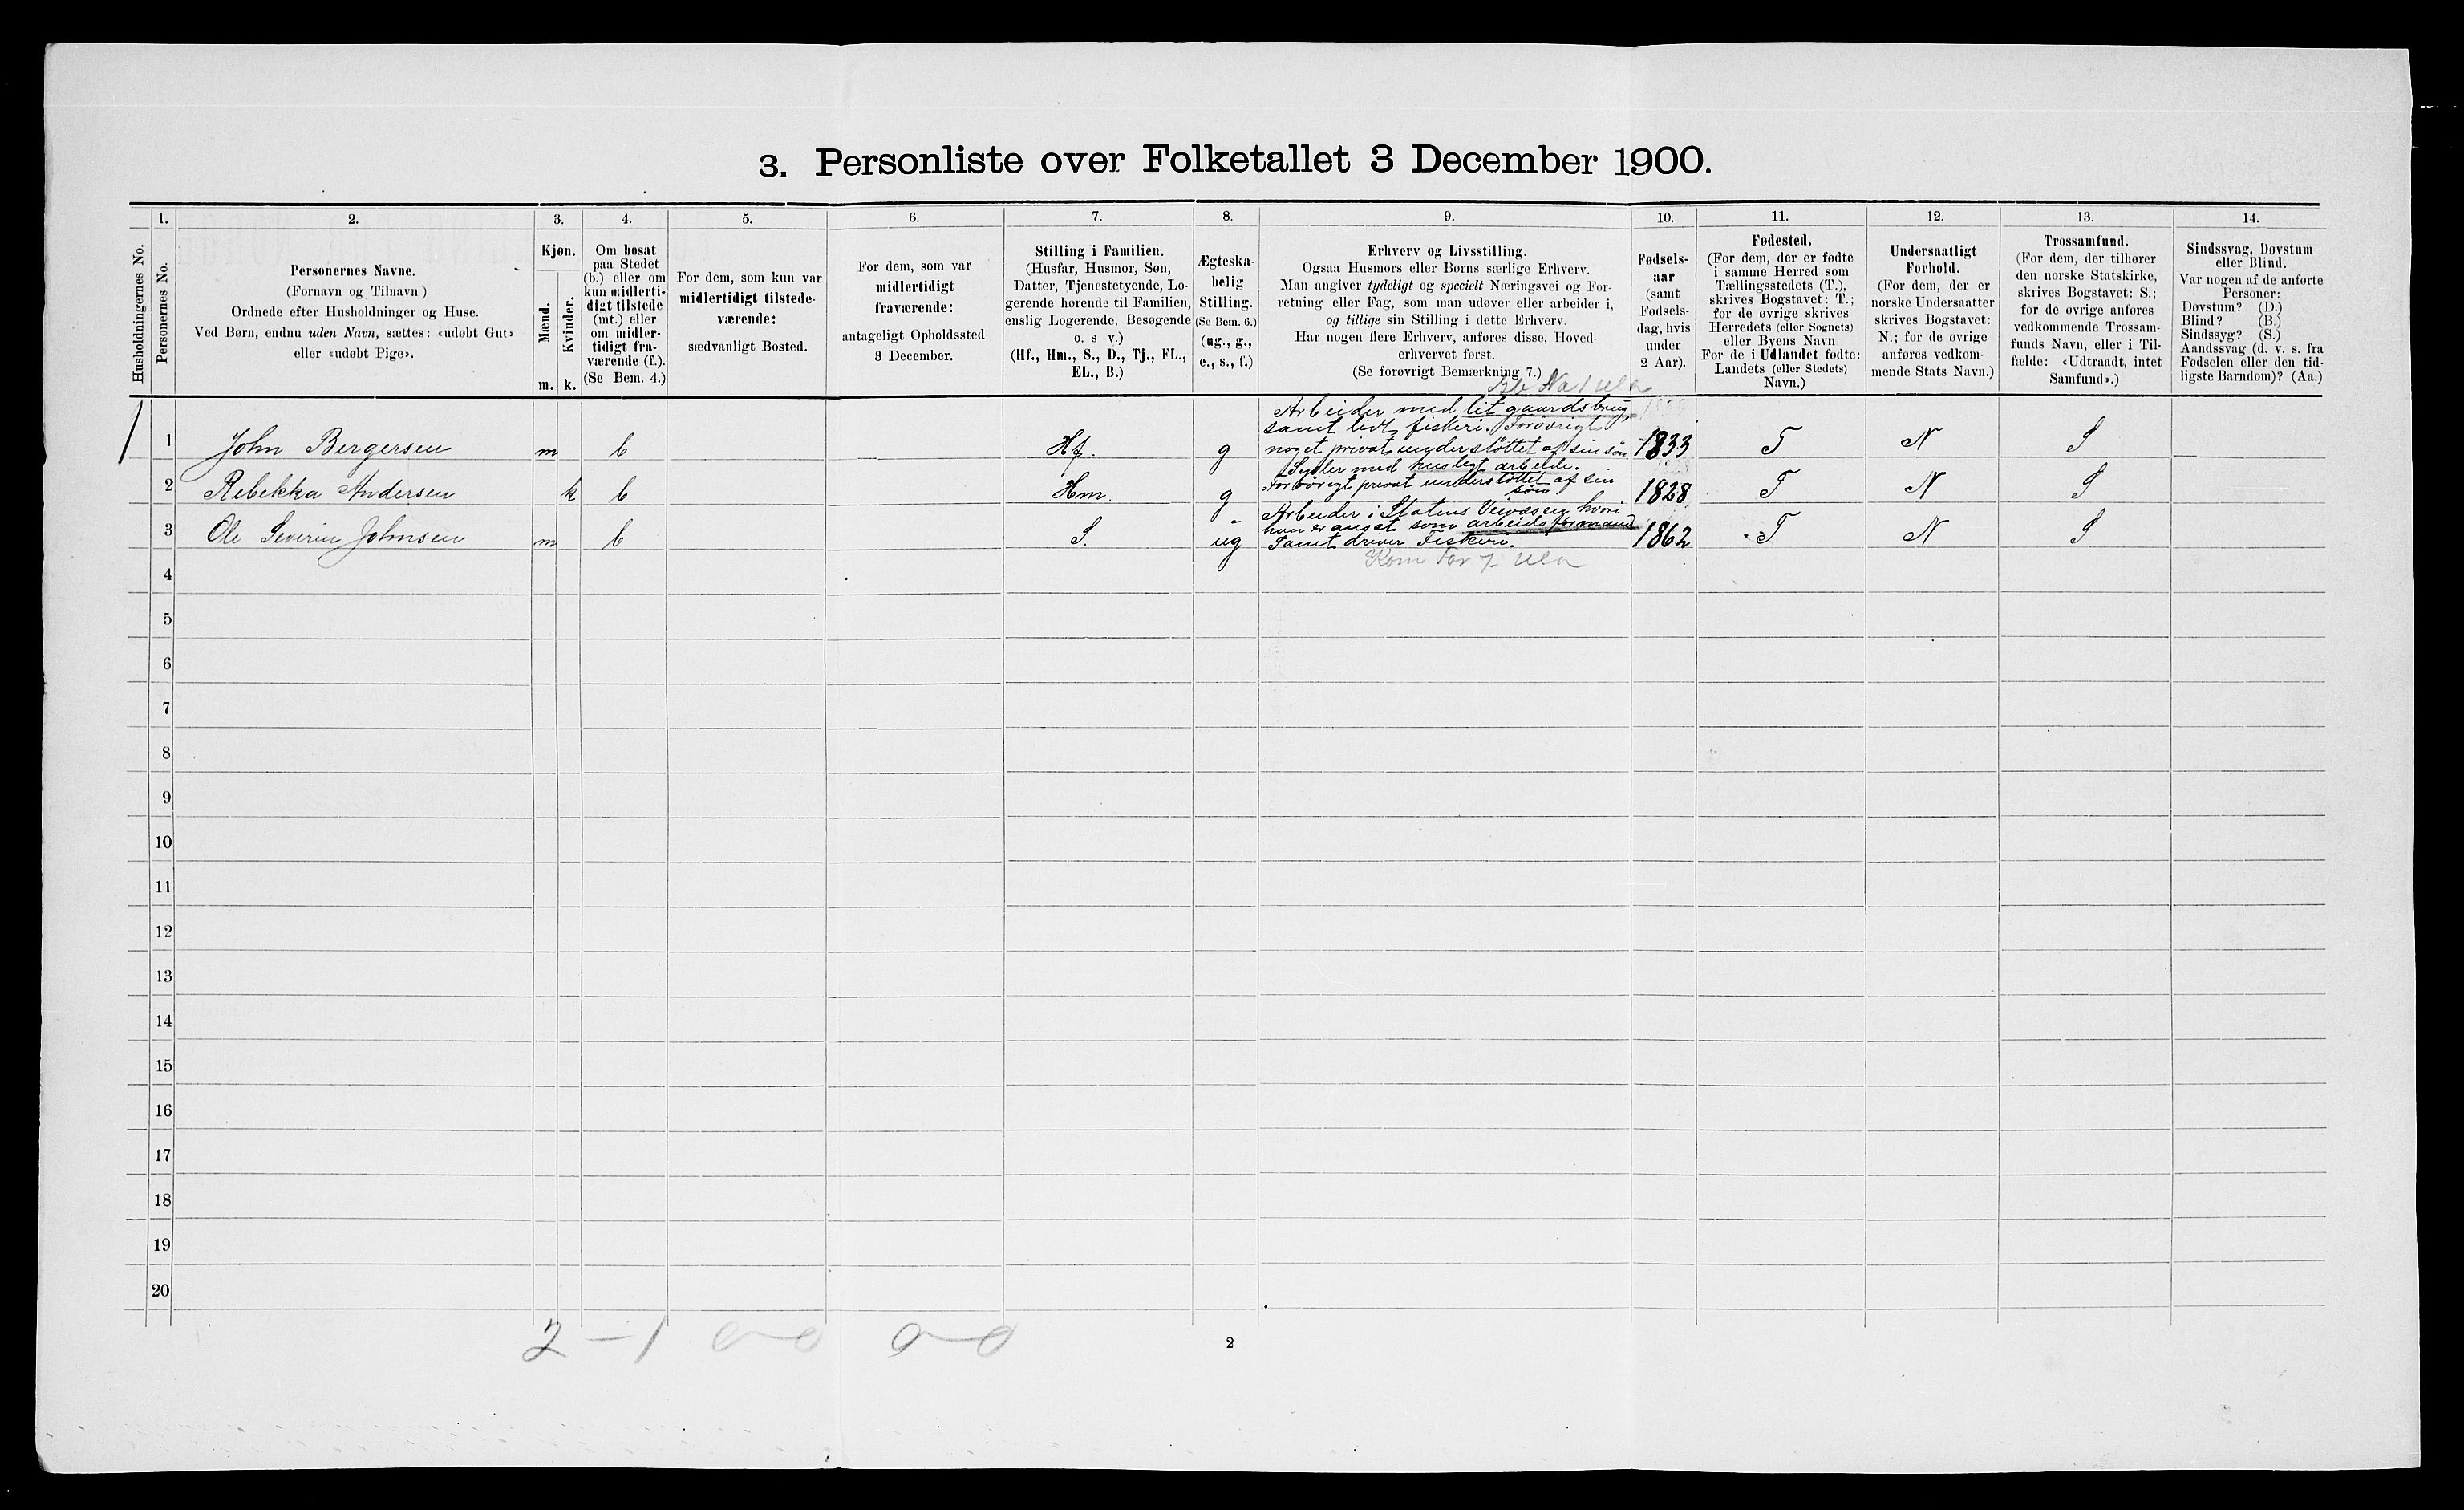 3. Personliste over Folketallet 3 December 1900.
Husholdningernes No.
1.
Personernes No.
2.
Personernes Navne.
(Fornavn og Tilnavn)
Ordnede efter Husholdninger og Huse.
Ved Børn, endnu uden Navn, sættes: «udøbt Gut»
eller «udøbt Pige».
3.
Kjøn.
Mænd.
Kvinder.
m. k.
4.
Om bosat
paa Stedet
(b.) eller om
kun midlerti-
digt tilstede
(mt.) eller
om midler-
tidigt fra-
værende (f.).
(Se Bem. 4.)
5.
For dem, som kun var
midlertidigt tilstede-
værende:
sædvanligt Bosted.
6.
For dem, som var
midlertidigt
fraværende:
antageligt Opholdssted
3 December.
7.
Stilling i Familien.
(Husfar, Husmor, Søn,
Datter, Tjenestetyende, Lo-
gerende hørende til Familien,
enslig Logerende, Besøgende
o. s v.)
(Hf., Hm., S., D., Tj., FL.,
EL., B.)
8.
Ægteska-
belig
Stilling.
(Se Bem. 6.)
(ug., g.,
e., s., f.)
9.
Erhverv og Livsstilling.
Ogsaa Husmors eller Børns særlige Erhverv.
Man angiver tydeligt og specielt Næringsvei og For-
retning eller Fag, som man udøver eller arbeider i,
og tillige sin Stilling i dette Erhverv.
Har nogen flere Erhverv, anføres disse, Hoved-
erhvervet først.
(Se forøvrigt Bemærkning 7.)
10.
Fødsels-
aar
(samt
Fødsels-
dag, hvis
under
2 Aar).
11.
Fødested.
(For dem, der er fødte
i samme Herred som
Tællingsstedets (T.),
skrives Bogstavet: T.;
for de øvrige skrives
Herredets (eller Sognets)
eller Byens Navn
For de i Udlandet fødte:
Landets (eller Stedets)
Navn.)
12.
Undersaatligt
Forhold.
(For dem, der er
norske Undersaatter
skrives Bogstavet:
N.; for de øvrige
anføres vedkom-
mende Stats Navn.)
13.
Trossamfund.
(For dem, der tilhører
den norske Statskirke,
skrives Bogstavet: S.;
for de øvrige anføres
vedkommende Trossam-
funds Navn, eller i Til-
fælde: «Udtraadt, intet
Samfund».)
14.
Sindssvag, Døvstum
eller Blind.
Var nogen af de anførte
Personer:
Døvstum? (D.)
Blind? (B.)
Sindssyg? (S.)
Aandssvag (d. v. s. fra
Fødselen eller den tid-
ligste Barndom)? (Aa.)
Arbeider med lit gaardsbrug
samt lidt fiskeri. Forøvrigt
1 1 John Bergersen m b Hf. g noget privat understöttet af sin sön. 1833 T N S
Sysler med husligt arbeide.
2 Rebekka Andersen k b Hm. g Forøvrigt privat understöttet af sin sön. 1828 T N S
Arbeider i Statens Veivæsen hvori
han er ansat som arbeidsformand
3 Ole Severin Johnsen m b S. ug Samt driver Fiskeri. 1862 T N S
4
5
6
7
8
9
10
11
12
13
14
15
16
17
18
19
20
2 – 1 0–0 0–0
2